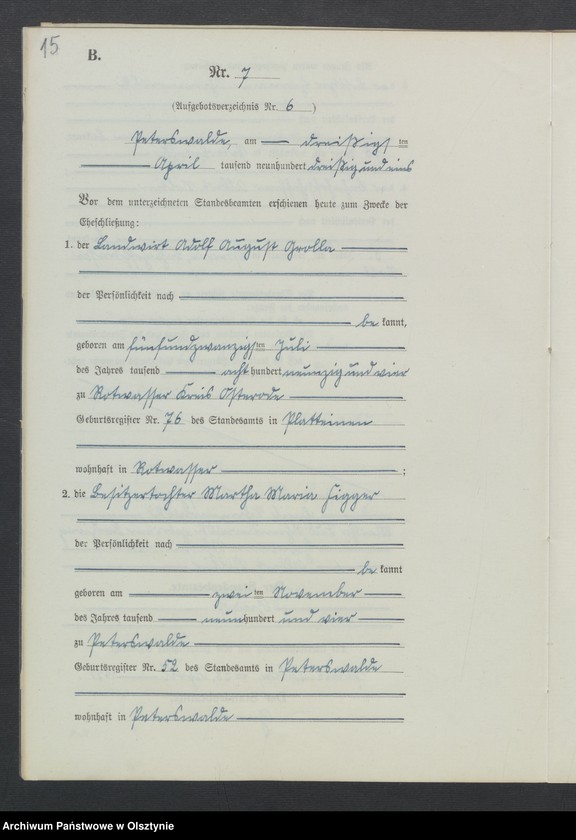 15
B.
Nr. 7
(Aufgebotsverzeichnis Nr. 6)
Peterswalde, am dreißigsten
April tausend neunhundert dreißig und eins
Vor dem unterzeichneten Standesbeamten erschienen heute zum Zwecke der
Eheschließung:
1. der Landwirt Adolf August Grolla
der Persönlichkeit nach
be kannt,
geboren am fünfundzwanzigsten Juli
des Jahres tausend acht hundert neunzig und vier
zu Rotwasser Kreis Osterode
Geburtsregister Nr. 76 des Standesamts in Platteinen
wohnhaft in Rotwasser ;
2. die Besitzertochter Martha Maria
der Persönlichkeit nach
be kannt
geboren am zweiten November
des Jahres tausend neunhundert und vier
zu Peterswalde
Geburtsregister Nr. 52 des Standesamts in Peterswalde
wohnhaft in Peterswalde
Archiwum Państwowe w Olsztynie